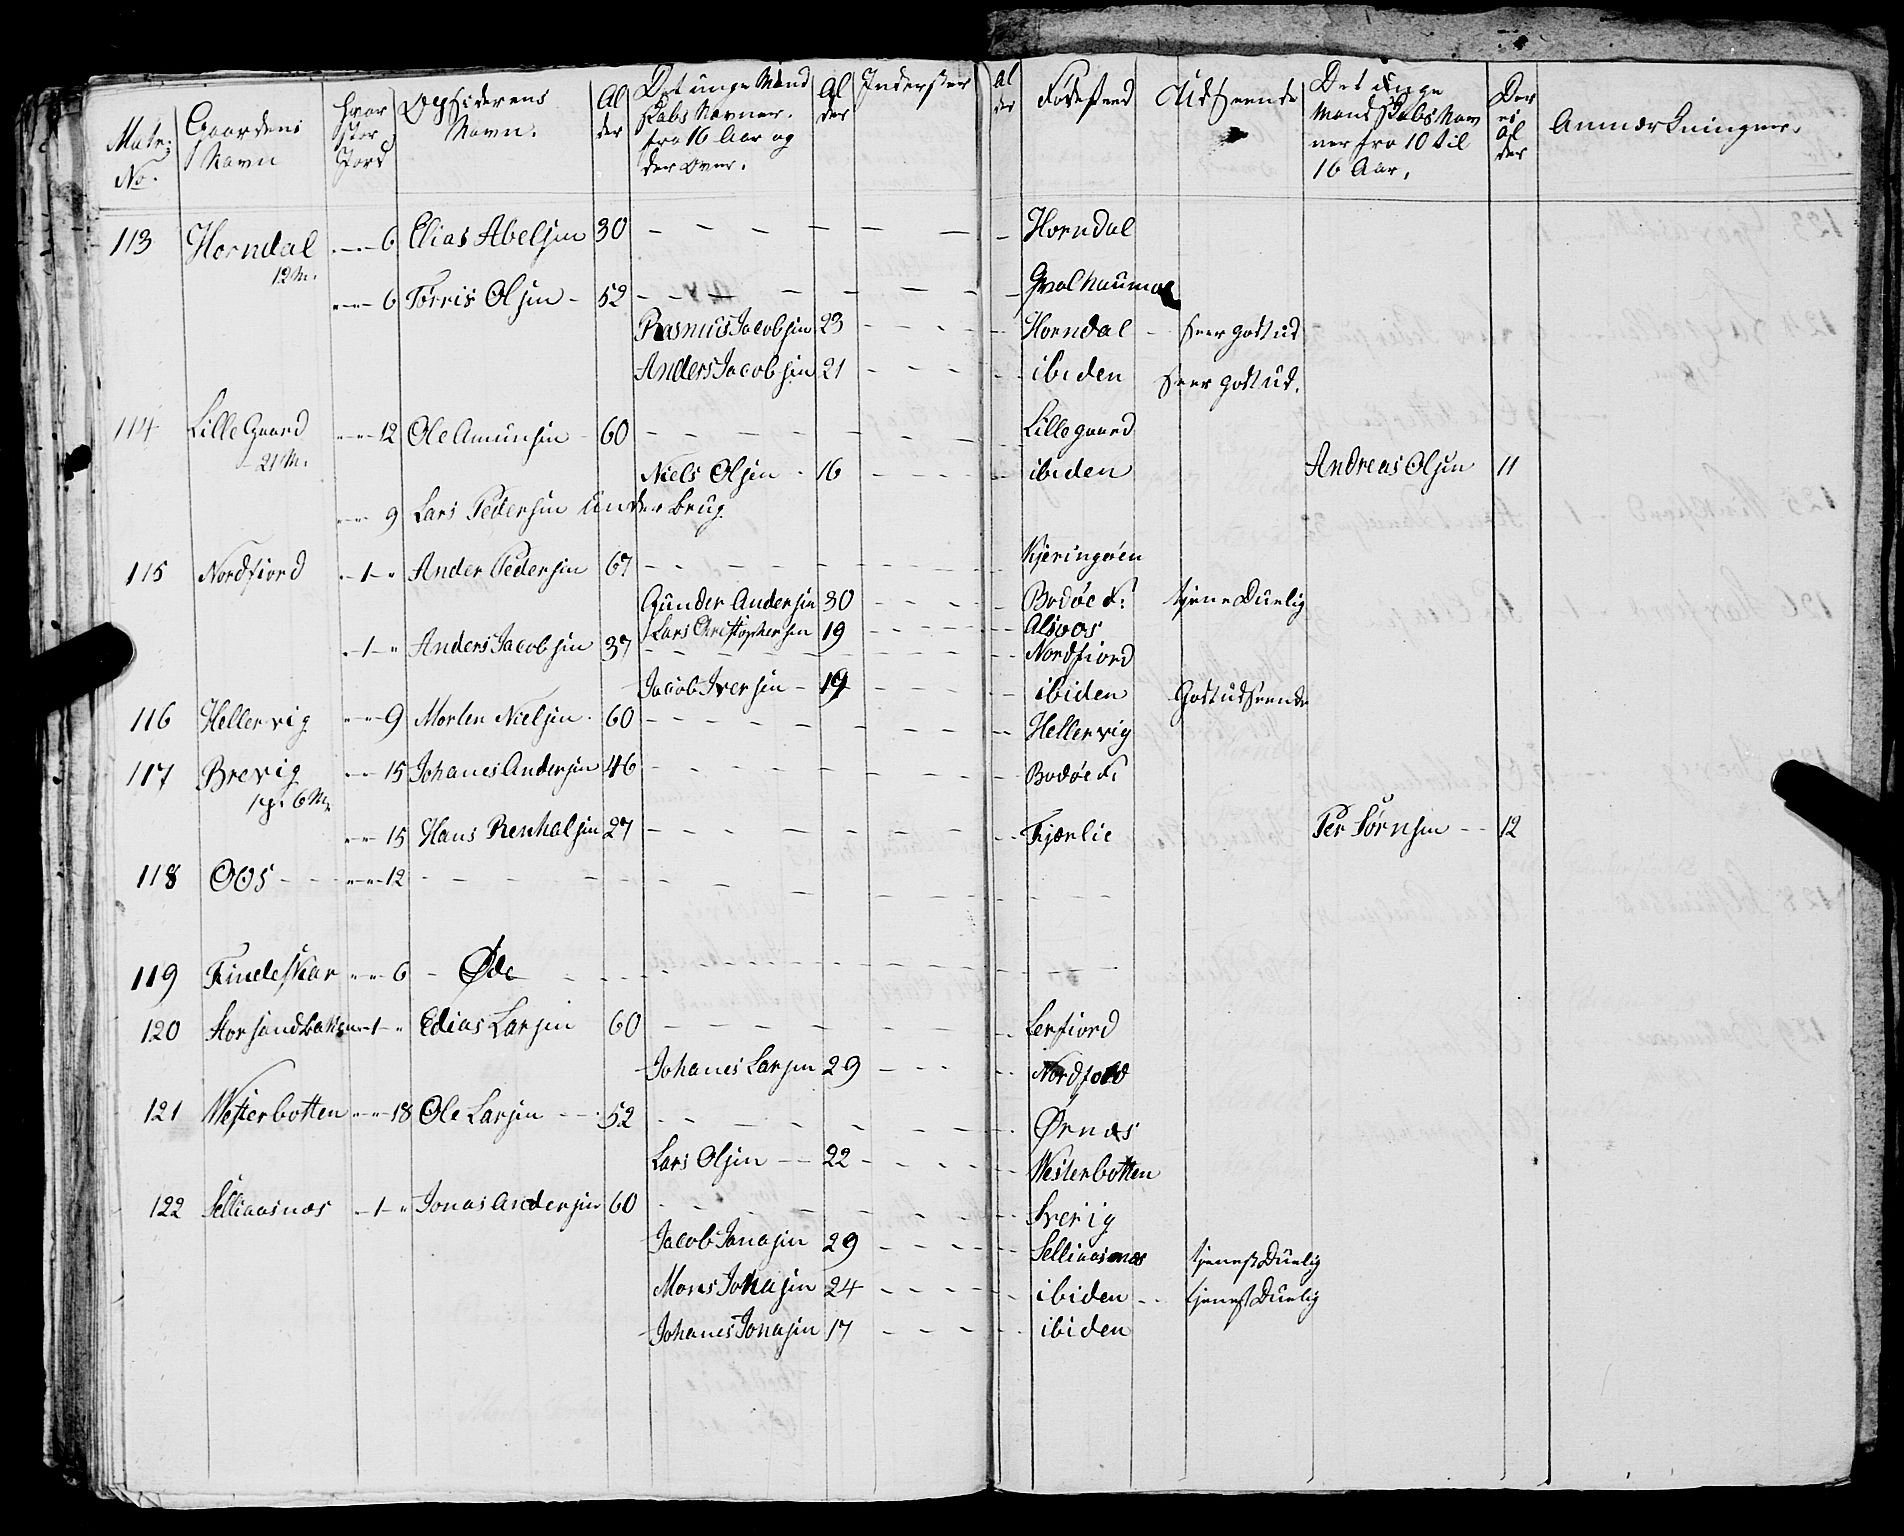 Matr: No. Gaardens Navn hvor stor Jord Opsiderens Navn. Al der Det unge Mand Skabs Navner fra 16 Aar og der over. Al der Inderster Al der Fødested Udseende Det unge Mand Skabs Nav ner fra 10 til 16 Aar. Der es Al der Anmærkninger.
113 Horndal 6 Elias Abelsen 30 Horndal
12 M.
6 Tørris Olsen 52
Rasmus Jacobsen 23 Horndal seer godt ud
Anders Jacobsen 21 ibiden seer godt ud.
114 Lille Gaard 12 Ole Amunsen 60 Lillegaard
21 M.
Niels Olsen 16 ibiden Andreas Olsen 11
9 Lars Pedersen under brug
115 Nordfiord 1 Ander Pedersen 67 Kjeringøen
Gunder Andersen 30 Bodøe F: tjene Duelig
Lars Christophersen 19 Alsoos
1 Anders Jacobsen 37 Nordfiord
Jacob Iversen 19 ibiden Godt udseende
116 Hellervig 9 Morten Nielsen 60 Hellervig
117 Brevig 15 Johanes Andersen 46 Bodøe F:
1 p. 6 M.
15 Hans Renhalsen 27 Fjærlie Per Sørnsen 12
118 Oos 12
119 Findeskar 6 Øde
120 Storsandbaken 1 Edias Larsen 60 Lerfiord
Johanes Larsen 29 Nordford
121 Westerbotten 18 Ole Larsen 52 Ørnæs
Lars Olsen 22 Westerbotten
122 Selliaasnæs 1 Jonas Andersen 60 Sverig
Jacob Jonasen 29 Selliaasnæs tjenest Duelig
Mons Johasen 24 ibiden tjenest Duelig
Johanes Jonasen 17 ibiden